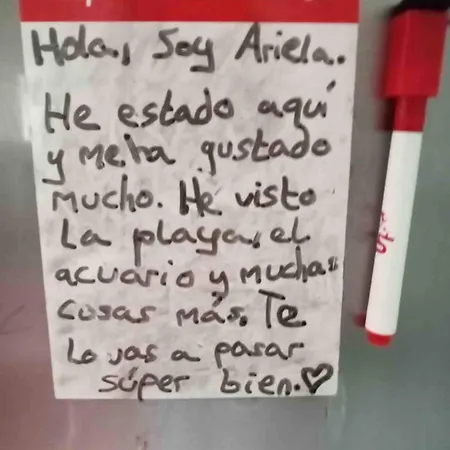 Hola, Soy Ariela.
He estado aquí
y me ha gustado
mucho. He visto
La playa, el
acuario y muchas
cosas más. Te
lo vas a pasar
súper bien.♡